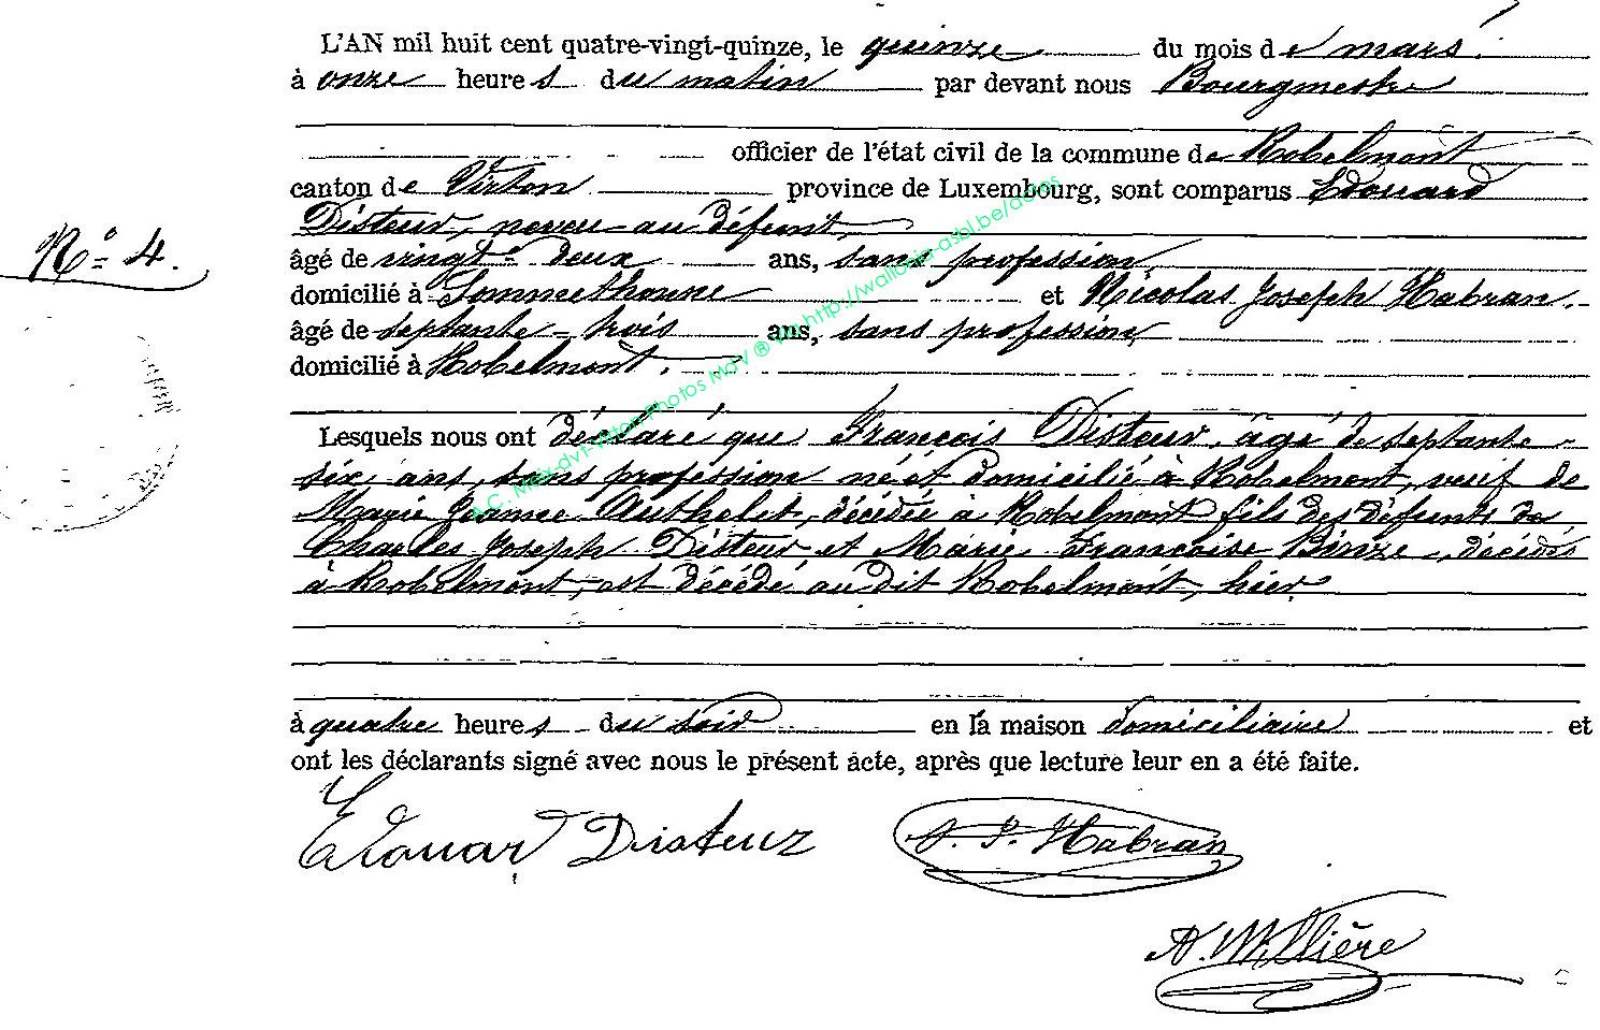 L'AN mil huit cent quatre-vingt-quinze, le quinze du mois de mars.
à onze heures du matin par devant nous Bourgmestre
officier de l'état civil de la commune de Robelmont
canton de Virton province de Luxembourg, sont comparus Edouard
Disteur, neveu au défunt,
N° 4.
âgé de vingt-deux ans, sans profession,
domicilié à Sommethonne et Nicolas Joseph Habran.
âgé de septante-trois ans, sans profession,
domicilié à Robelmont.
Lesquels nous ont déclaré que François Disteur, âgé de septante-
six ans, sans profession né et domicilié à Robelmont, veuf de
Marie Jeanne Authelet, décédée à Robelmont fils des défunts de
Charles Joseph Disteur et Marie Françoise Binze, décédés
à Robelmont, est décédé au dit Robelmont, hier
à quatre heures du soir en la maison domiciliaire et
ont les déclarants signé avec nous le présent acte, après que lecture leur en a été faite.
Edouard Disteur N. J. Habran
A. Millière
A.C. Meix-dvt-Virton Photos MdV ® via http://wallonia-asbl.be/docs